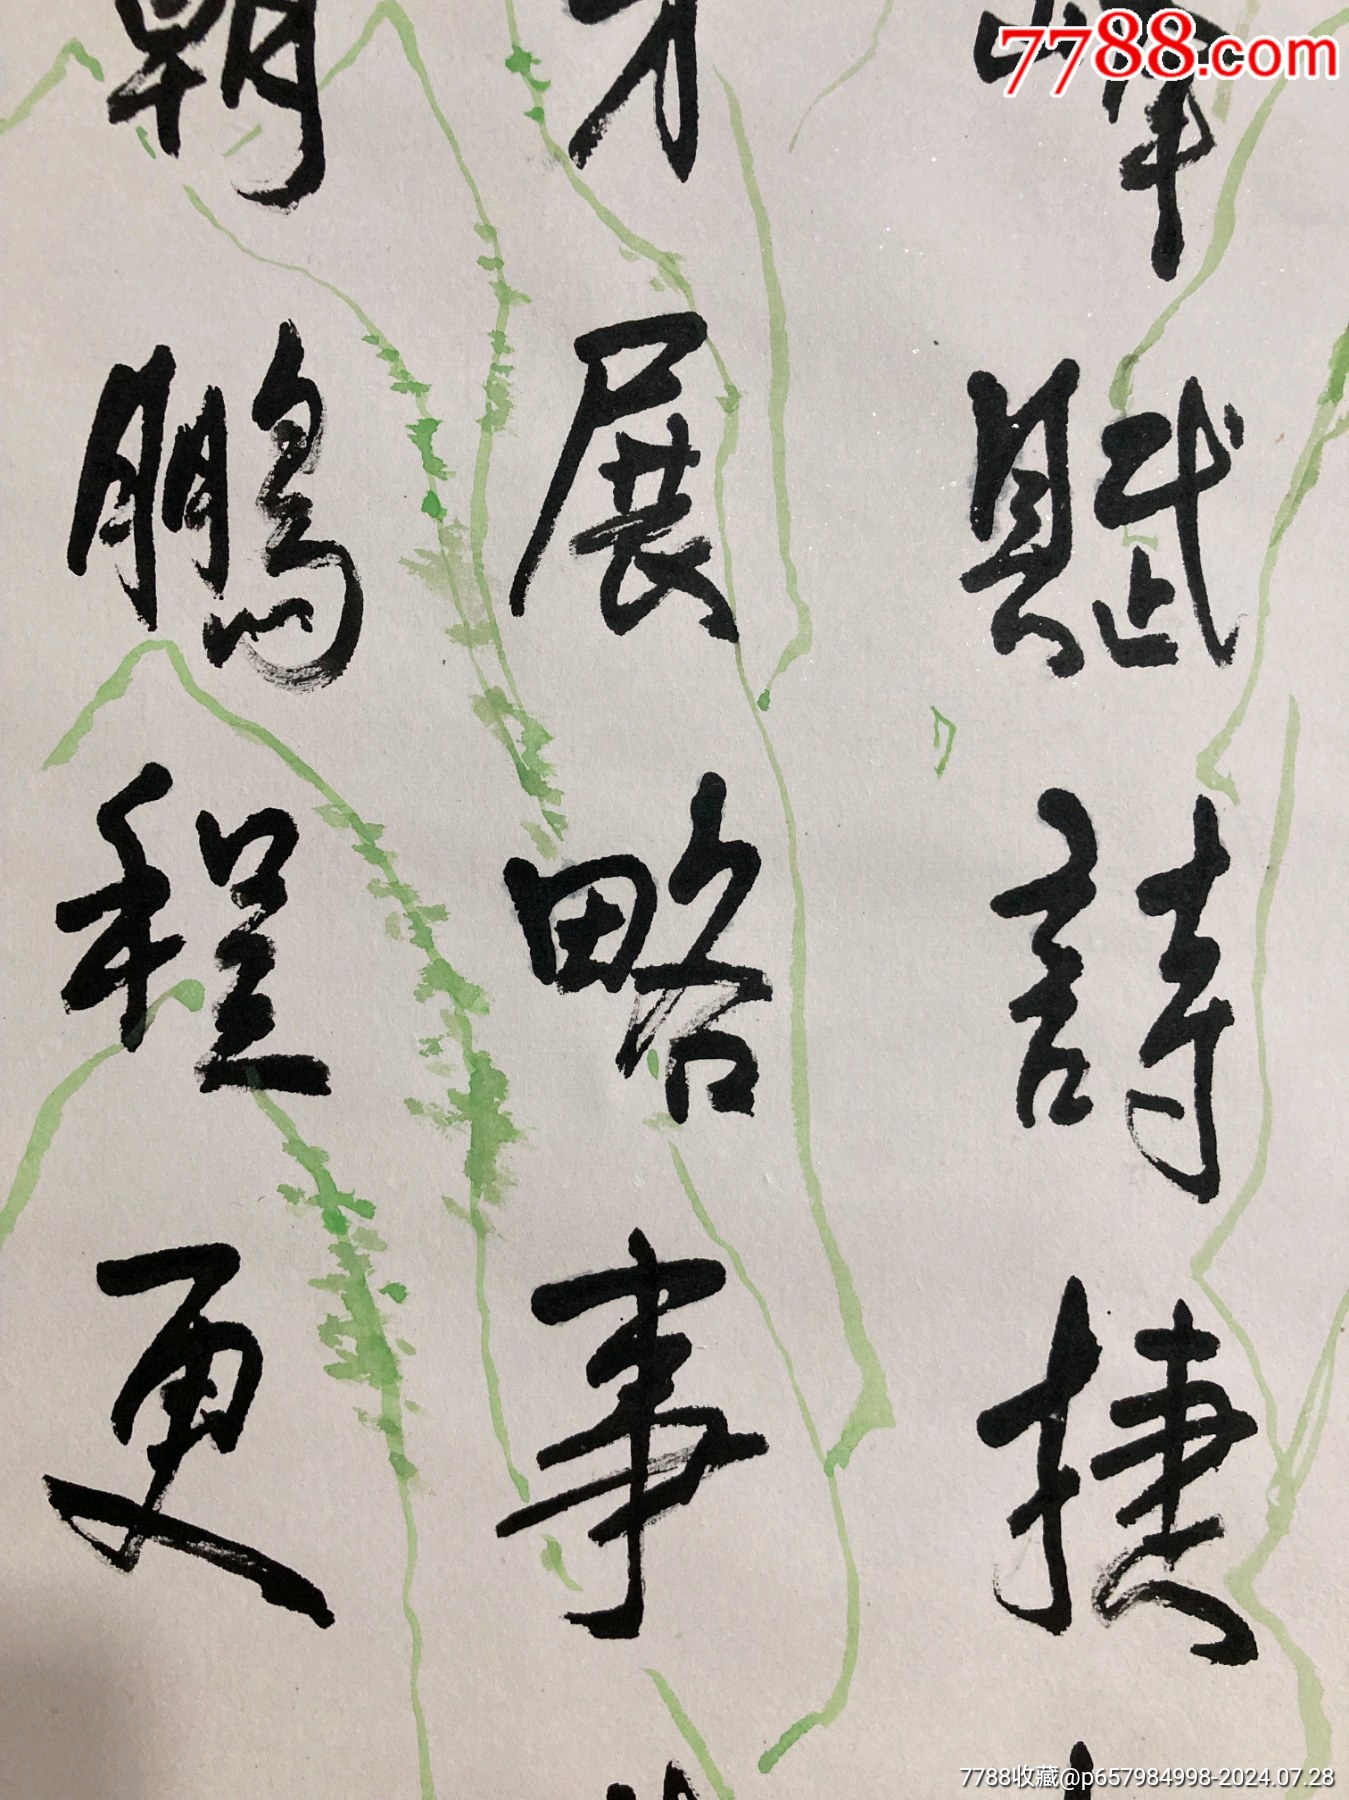 7788.com
賦詩捷
才展略事
朝鵬程更
7788收藏@p657984998-2024.07.28